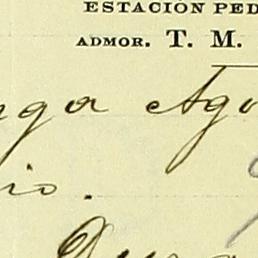 ESTACIÓN PED
ADMOR. T. M.
nga Ago
io.